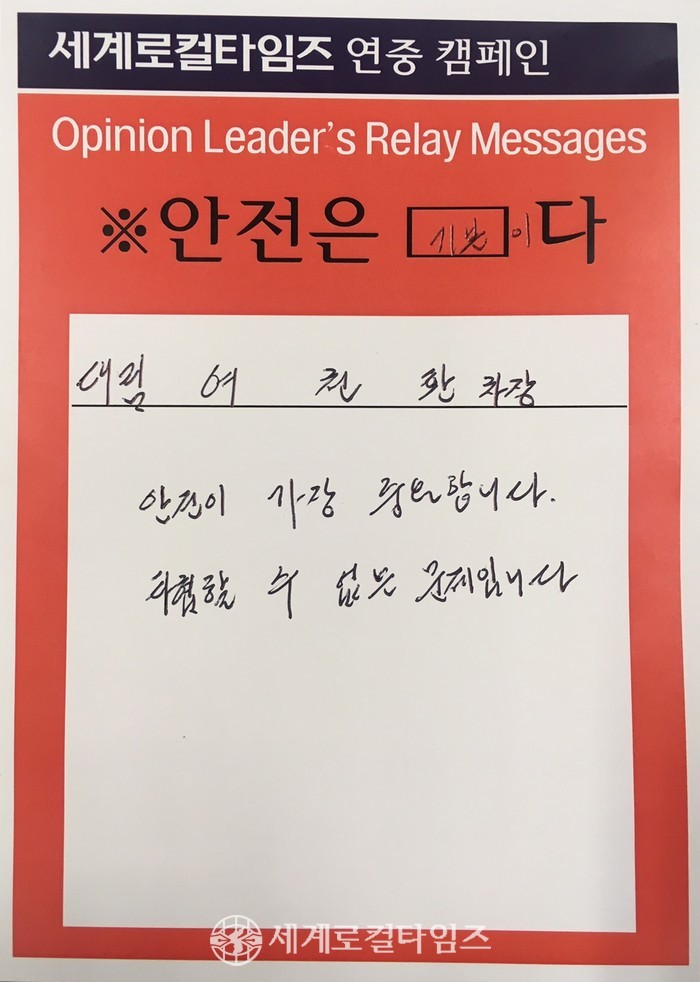 세계로컬타임즈 연중 캠페인
Opinion Leader's Relay Messages
※안전은 기본이다
대림 여 천 환 차장
안전이 가장 중요합니다.
타협할 수 없는 문제입니다
세계로컬타임즈